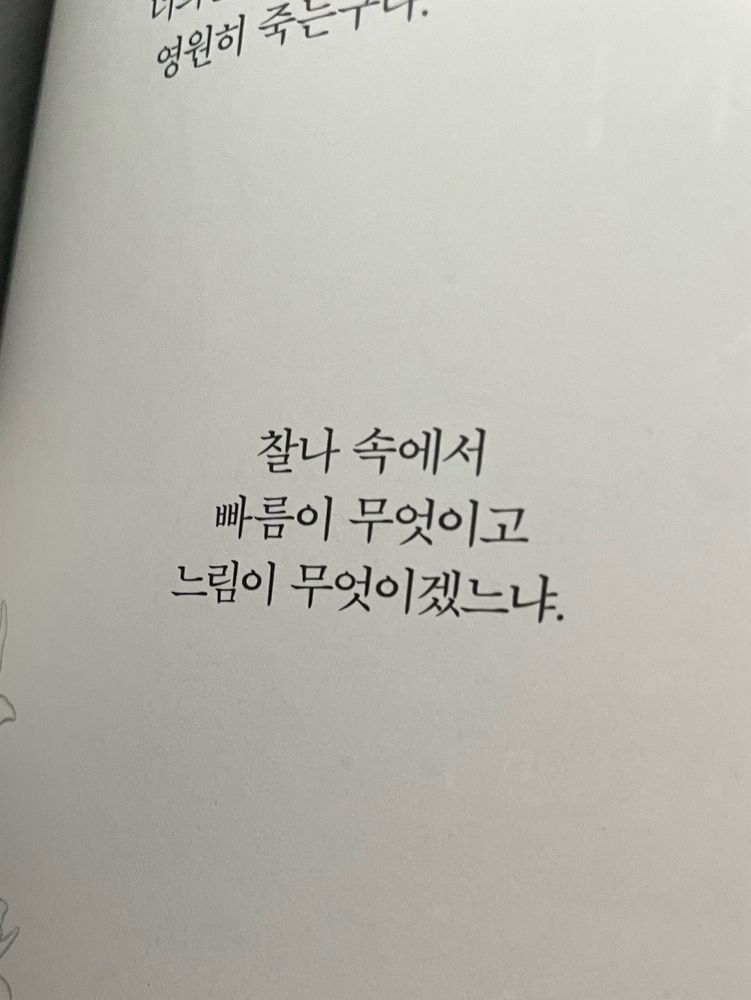 영원히 죽는구나.
찰나 속에서
빠름이 무엇이고
느림이 무엇이겠느냐.